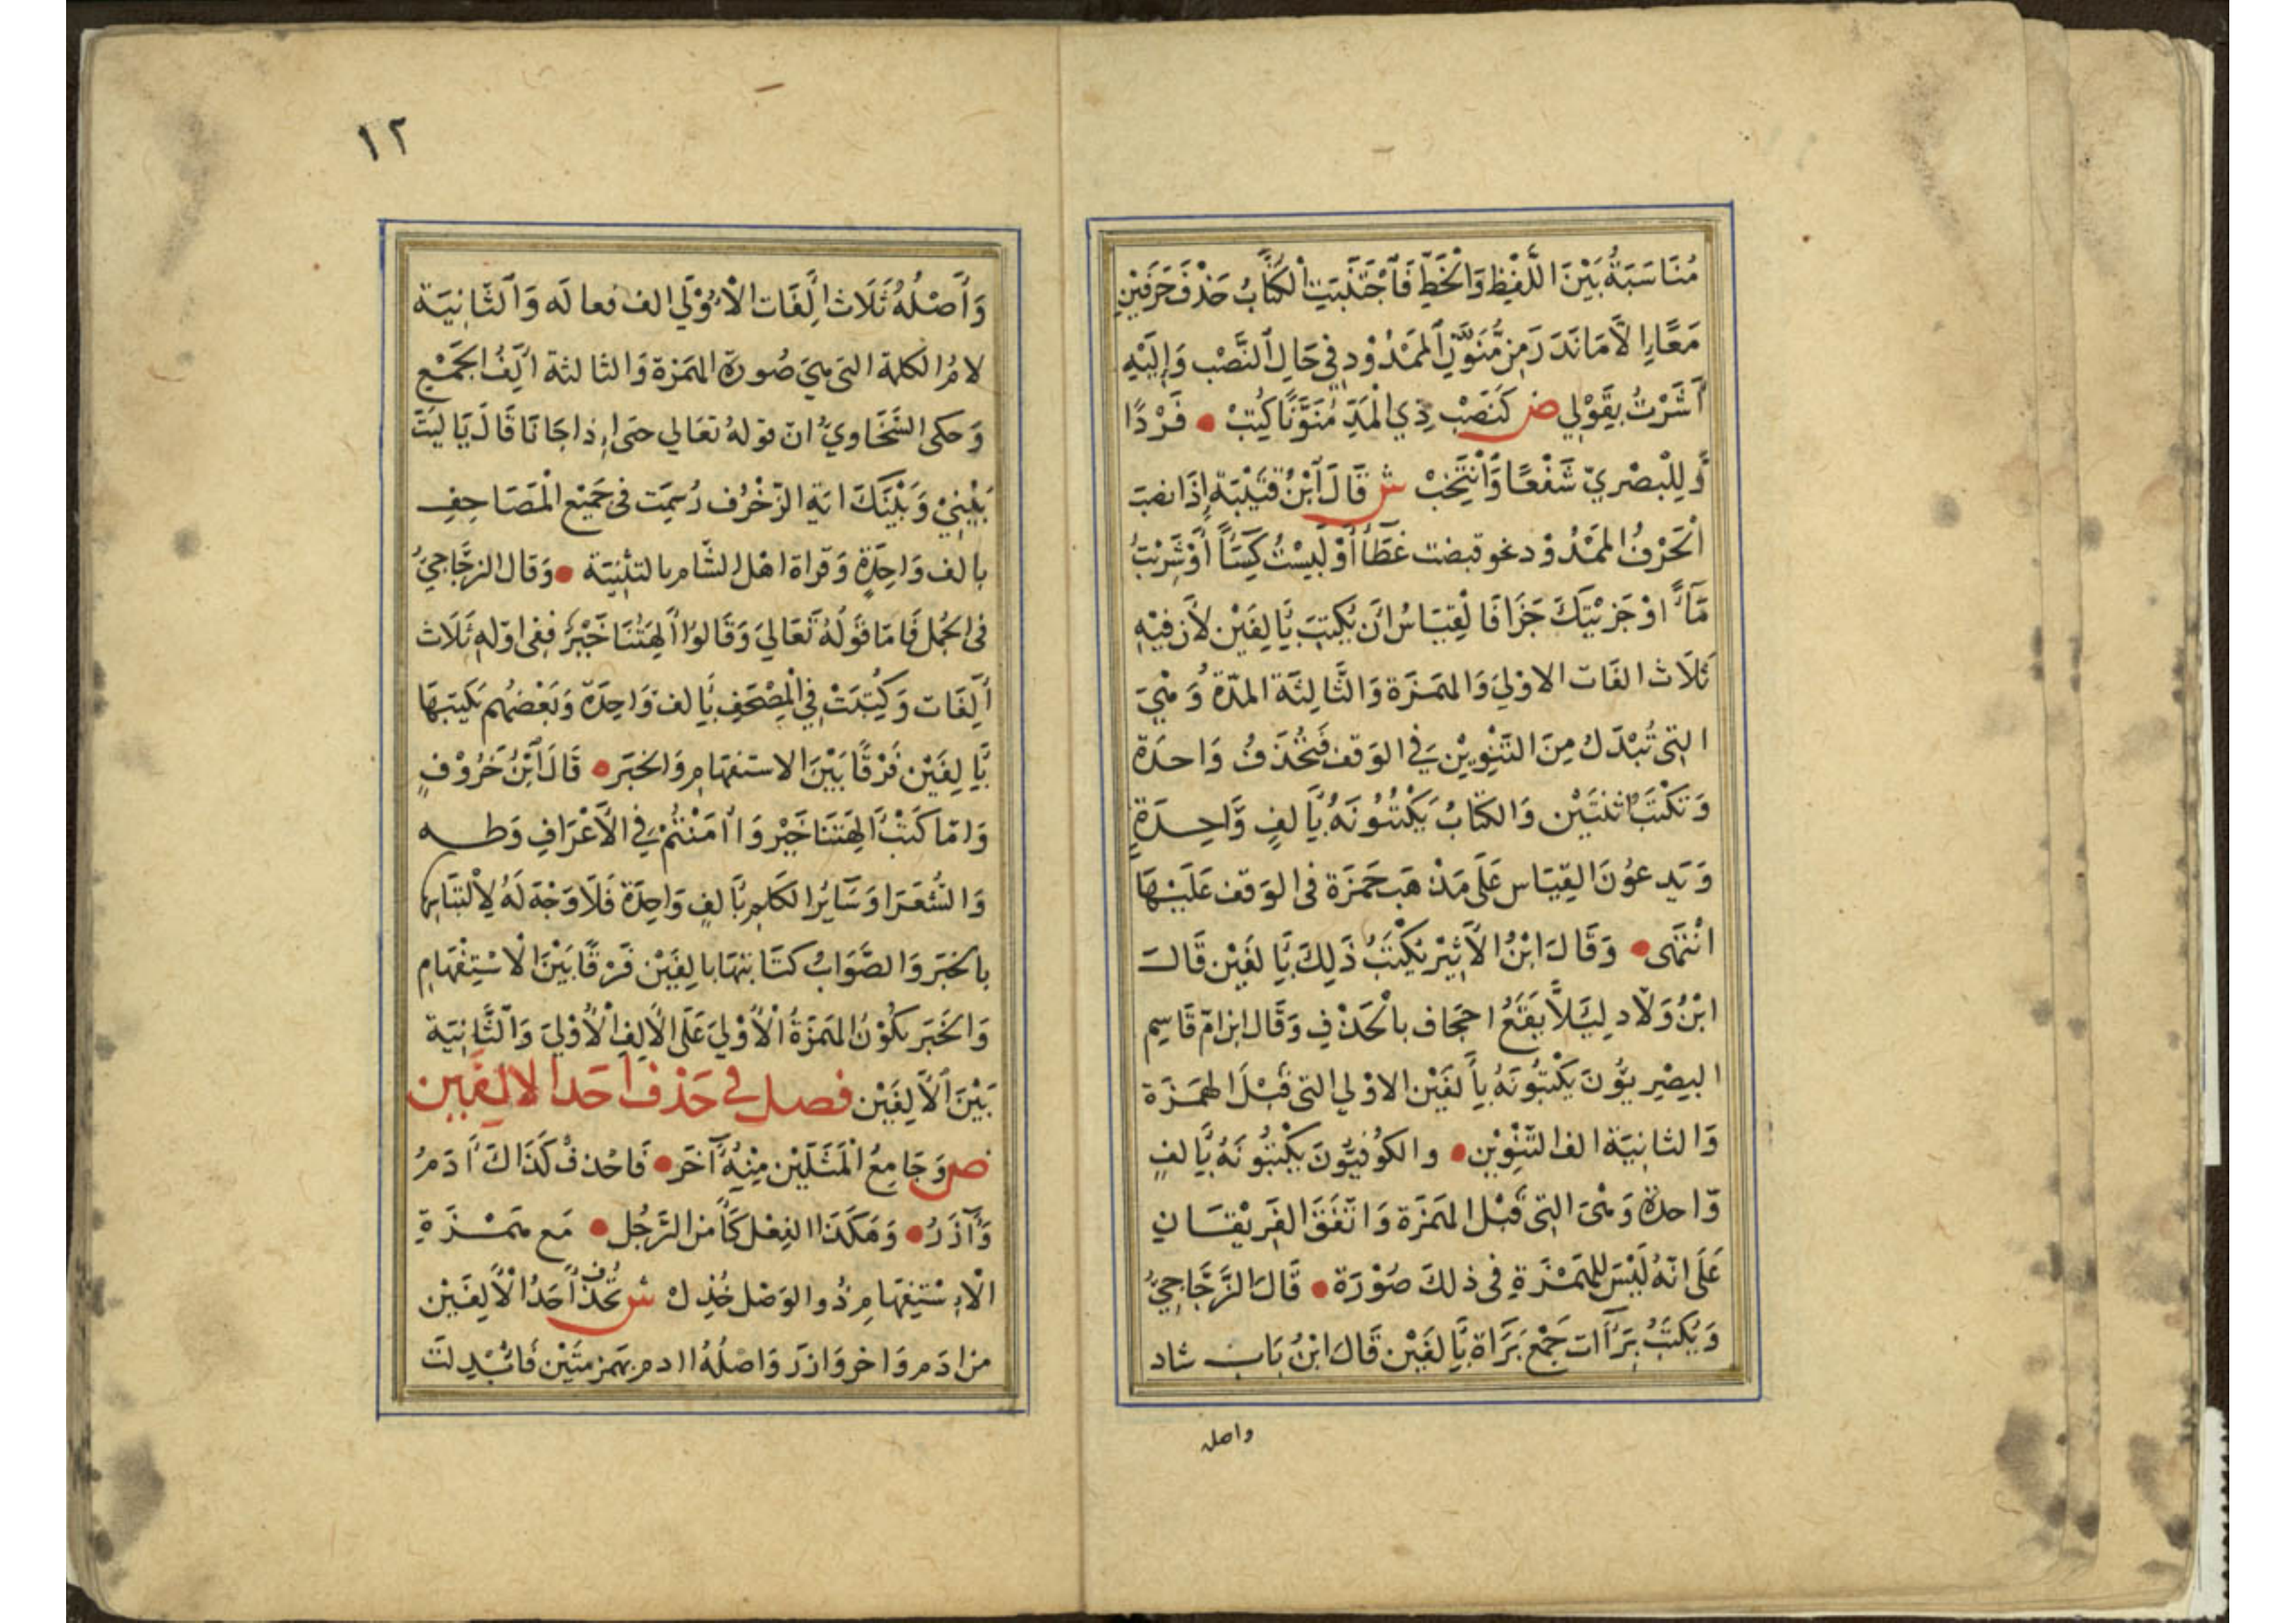 مُنَاسَبَةُ بَيْنَ اللَّفِظِ وَالْخَطِّ فَاَجْتَنَبَتِ الْكُتَّابُ حَذْفَ حَرَفَيْنِ
مَعًا اِلَّا مَا نَدَرَ مِنْ مُّنَوَّنِ الْمَمْدُوْدِ فِي حَالِ النَّصْبِ وَاِلَيْهِ
اَشَرْتُ بِقَوْلِي ص كَنَصْبِ ذِي الْمَدِّ مُنَوَّنًا كُتِبْ • فَرْدًا
وَلِلْبِصْرِيّ شَفْعًا وَانْتُخِبْ ش قَالَ ابْنُ قُتَيْبَةٍ اِذَا نصبَ
الْحَرْفُ الْمَمْدُوْد نحو قبضت غَطَآً اَوْ لَبِسْتُ كِسَآً اَوْ شَرِبْتُ
مَآءً اوْ جَزَيْتُكَ جَزَآً فَالْقِيَاسُ اَنْ يُكْتَبَ بِاَلِفَيْنِ لِاَنَّ فِيْهِ
ثَلَاثَ الفَات الاوْلَي وَالهَمَزَة وَالثَّالِثَة المدّة وَهْيَ
التِي تُبْدَلُ مِنَ التَّنْوِيْنِ فِي الوَقف فَتُحْذَفُ وَاحدَة
وَتُكْتَبُ ثنتَيْن وَالكتَابُ يَكْتُبُوْنَهُ بِاَلِفٍ وَّاحِدَةٍ
وَيَدعوْنَ القِيَاس عَلَي مَذْهَبِ حَمْزَة فى الوَقف عَلَيْهَا
انْتَهَى • وَقَالَ ابْنُ الْاَثِيْر يُكْتَبُ ذَلِكَ بِاَلفَيْن قَالَ
ابْنُ وَلَّاد لِيَلَّا يَقَعُ احجَاف بالْحَذْفِ وَقَالَ ابن ام قَاسِم
البِصْرِيوُّنَ يَكْتبُوْنَهُ بِاَلفَيْن الاوْلي التي قَبْلَ الهَمَزَة
وَالثانِيَة الف التَّنْوِيْن • والكُوْفِيُّوْنَ يَكْتبُوْنَهُ بِاَلفٍ
وّاحدة وَهْىَ التِى قَبْلَ الهَمَزَة وَاتَّفَقَ الفَرِيْقَان
عَلَى انَّهُ لَيْسَ لِلْهَمْزَةِ فى ذلكَ صُوْرَة • قَالَ الزَّجَّاجِيُّ
وَيُكْتَبُ بَرَاآت جَمْعَ بَرَاة بِاَلفَيْنِ قَالَ ابْنُ بَاب شاد
واصله
١٢
وَاَصْلُهُ ثَلَاث اَلِفَات الْاُوْلَي الف فعالة وَالثَّانِيَة
لامُ الكلمة التى هِيَ صُورَة الهَمزة وَالثالثة اَلِفُ الجَمْعِ
وَحكى السَّخَاوِيُّ انّ قولهُ تعَالي حتى اِذا جَانَا قَالَ يَا لَيْتَ
بَيْنِيْ وَبَيْنَكَ اية الزّخْرُف رُسِمَت فى جَمِيْع الْمَصَاحِفِ
بالف وَاحِدَةٍ وَقراة اهْل الشَّام بالتثْنِيَة • وَقال الزجَّاجِيُّ
فى الجُمل فَامّا قَوْلُهُ تَعَالي وَقَالوْا اَالِهَتُنَا خَيْرٌ فِفى اوّله ثَلَاث
اَلِفَات وَكُتِبَتْ فِي الْمِصْحَفِ بِاَلف وَاحِدَة وَبَعْضُهم يَكتبهَا
بِاَلِفَيْن فَرْقًا بَيْنَ الاستفهَامِ وَالخبَر • قَالَ ابْنُ خَرُوْفٍ
وَامّا كَتْبُ اَالِهَتنَا خَيْر وَ ااَمَنْتُمْ فِي الْاَعْرَافِ وَطه
وَالشُّعَرَا وَسَايُر الكَلِمِ بِاَلفٍ وَاحِدَة فَلَا وَجْهَ لَهُ لِاِلْتبَاسِهَا
بالخبَر وَالصَّوَابُ كتَابتهَا بالِفَيْن فَرْقًا بَيْنَ الْاسْتِفْهَامِ
وَالخَبَر بكُوْنُ الهَمَزَةُ الْاُوْلَي عَلَى الْاَلِفِ الْاُوْلَي وَالثَّانِيَة
بَيْنَ الْاَلِفَيْن فصل في حَذف احَد الالِفَيْن
ص وَجَامِعُ الْمَثَلَيْن مِنْهُ آخَر • فَاحْذفْ كَذَاكَ اَدَمُ
وَآزَرُ • وَهَكَذَا الفِعْل كَآمن الرَّجُل • مَع هَمْزَةِ
الْاِسْتِفِهَامِ ذُو الوَصْل خُذِل ش تُحْذَف اَحَدُ الْاَلِفَيْن
من ادَم وَاخر وَازر وَاصْلُهُ اادم بهَمزتَيْن فَابْدِلت